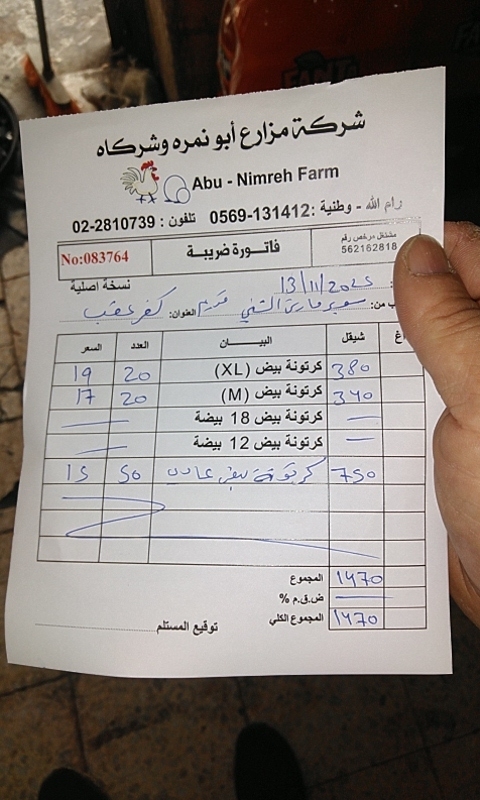 شركة مزارع أبو نمره وشركاه
Abu - Nimreh Farm
رام الله - وطنية : 0569-131412 تلفون : 02-2810739
مشتغل مرخص رقم
562162818
فاتورة ضريبة
No:083764
13/11/2025
نسخة اصلية
سوبر ماركت العنوان: كفر عقب
شيقل البيـــــان العدد السعر
380 كرتونة بيض (XL) 20 19
340 كرتونة بيض (M) 20 17
كرتونة بيض 18 بيضة
كرتونة بيض 12 بيضة
750 كرتونة بيض 50 15
المجموع 1470
ض.ق.م %
المجموع الكلي 1470
توقيع المستلم